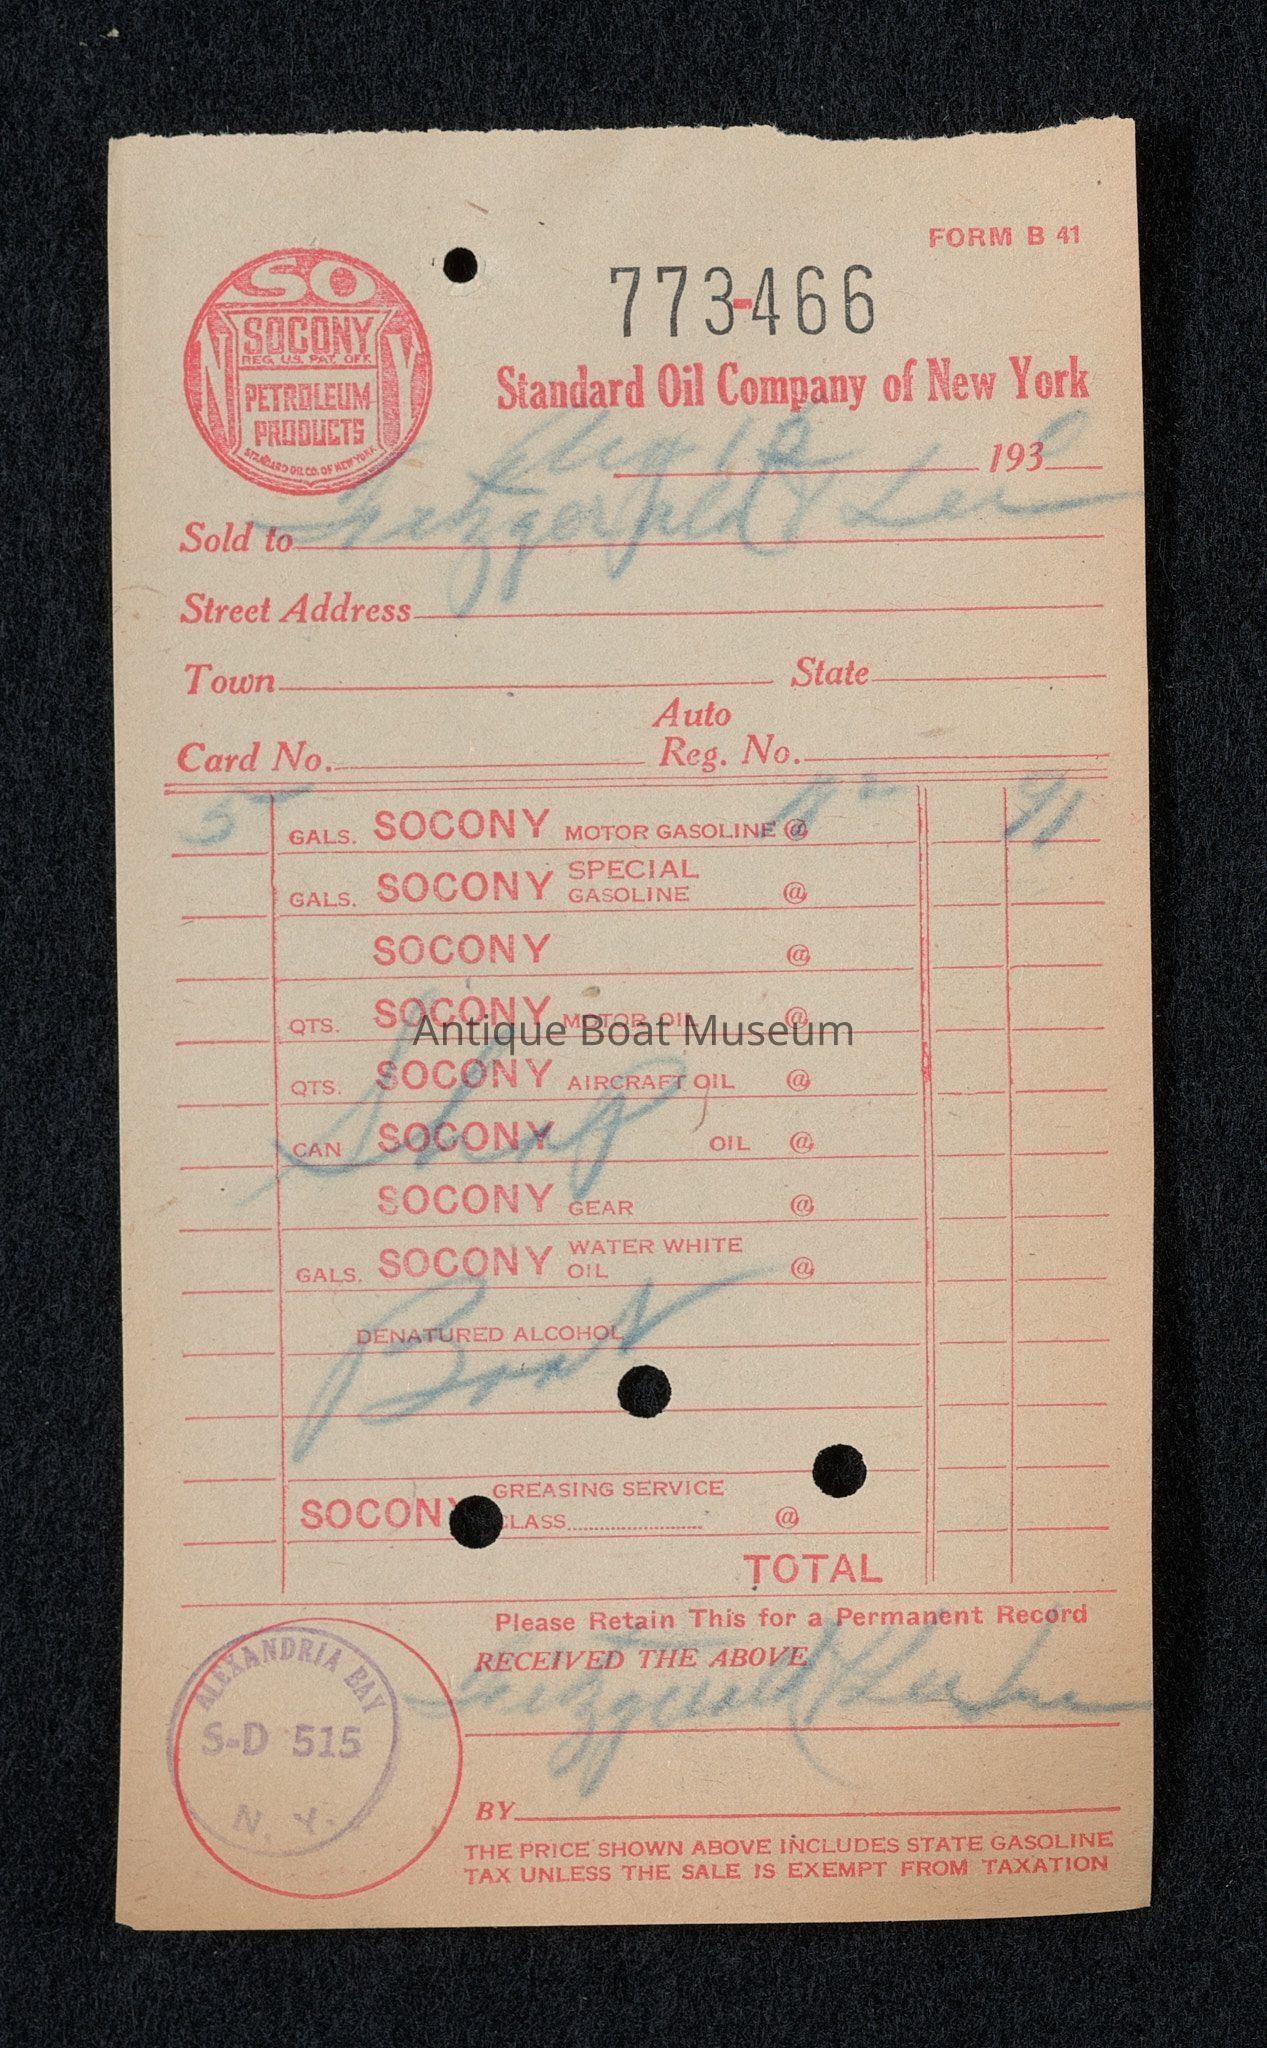 FORM B 41
SO
NY
SOCONY
REG. U.S. PAT. OFF.
PETROLEUM
PRODUCTS
STANDARD OIL CO. OF NEW YORK
773-466
Standard Oil Company of New York
Aug 12 193
Sold to Fitzgerald & Lee
Street Address
Town State
Auto
Card No. Reg. No.
5 GALS. SOCONY MOTOR GASOLINE @ 91
GALS. SOCONY SPECIAL GASOLINE @
SOCONY @
QTS. SOCONY MOTOR OIL @
Antique Boat Museum
QTS. SOCONY AIRCRAFT OIL @
CAN SOCONY OIL @
Shop
SOCONY GEAR @
GALS. SOCONY WATER WHITE OIL @
DENATURED ALCOHOL
Boat
SOCONY GREASING SERVICE
CLASS @
TOTAL
Please Retain This for a Permanent Record
RECEIVED THE ABOVE
Fitzgerald & Lee
ALEXANDRIA BAY
S-D 515
N. Y.
BY
THE PRICE SHOWN ABOVE INCLUDES STATE GASOLINE
TAX UNLESS THE SALE IS EXEMPT FROM TAXATION